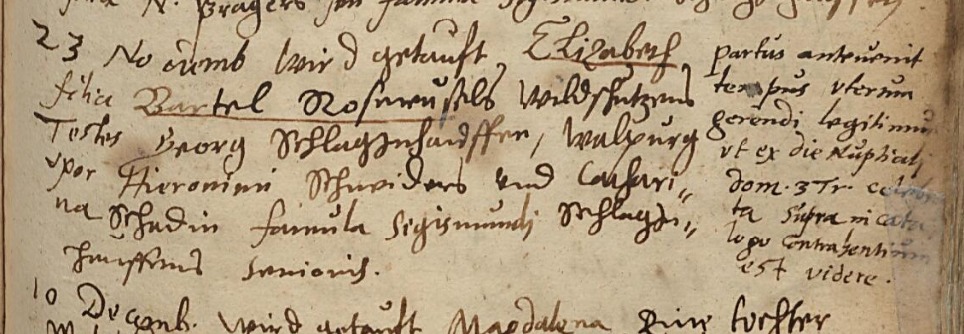 23 Nouemb wird getauft Elizabeth
filia Bartel Rosenwusels Wildschützens
Testes Georg Schlaginhauffen, Walpurg
vxor Hieronimi Schneiders vnd Cathari„
na Schadin famula Sigismundj Schlagin„
heuffens senioris.
partus anteuenit
tempus vterum
gerendi legitimu
vt ex die Nuptialj
dom. 3 Tr. celebra
ta supra in cata
logo contrahentium
est videre.
10 Decemb. wird getauft Magdalena Eine tochter